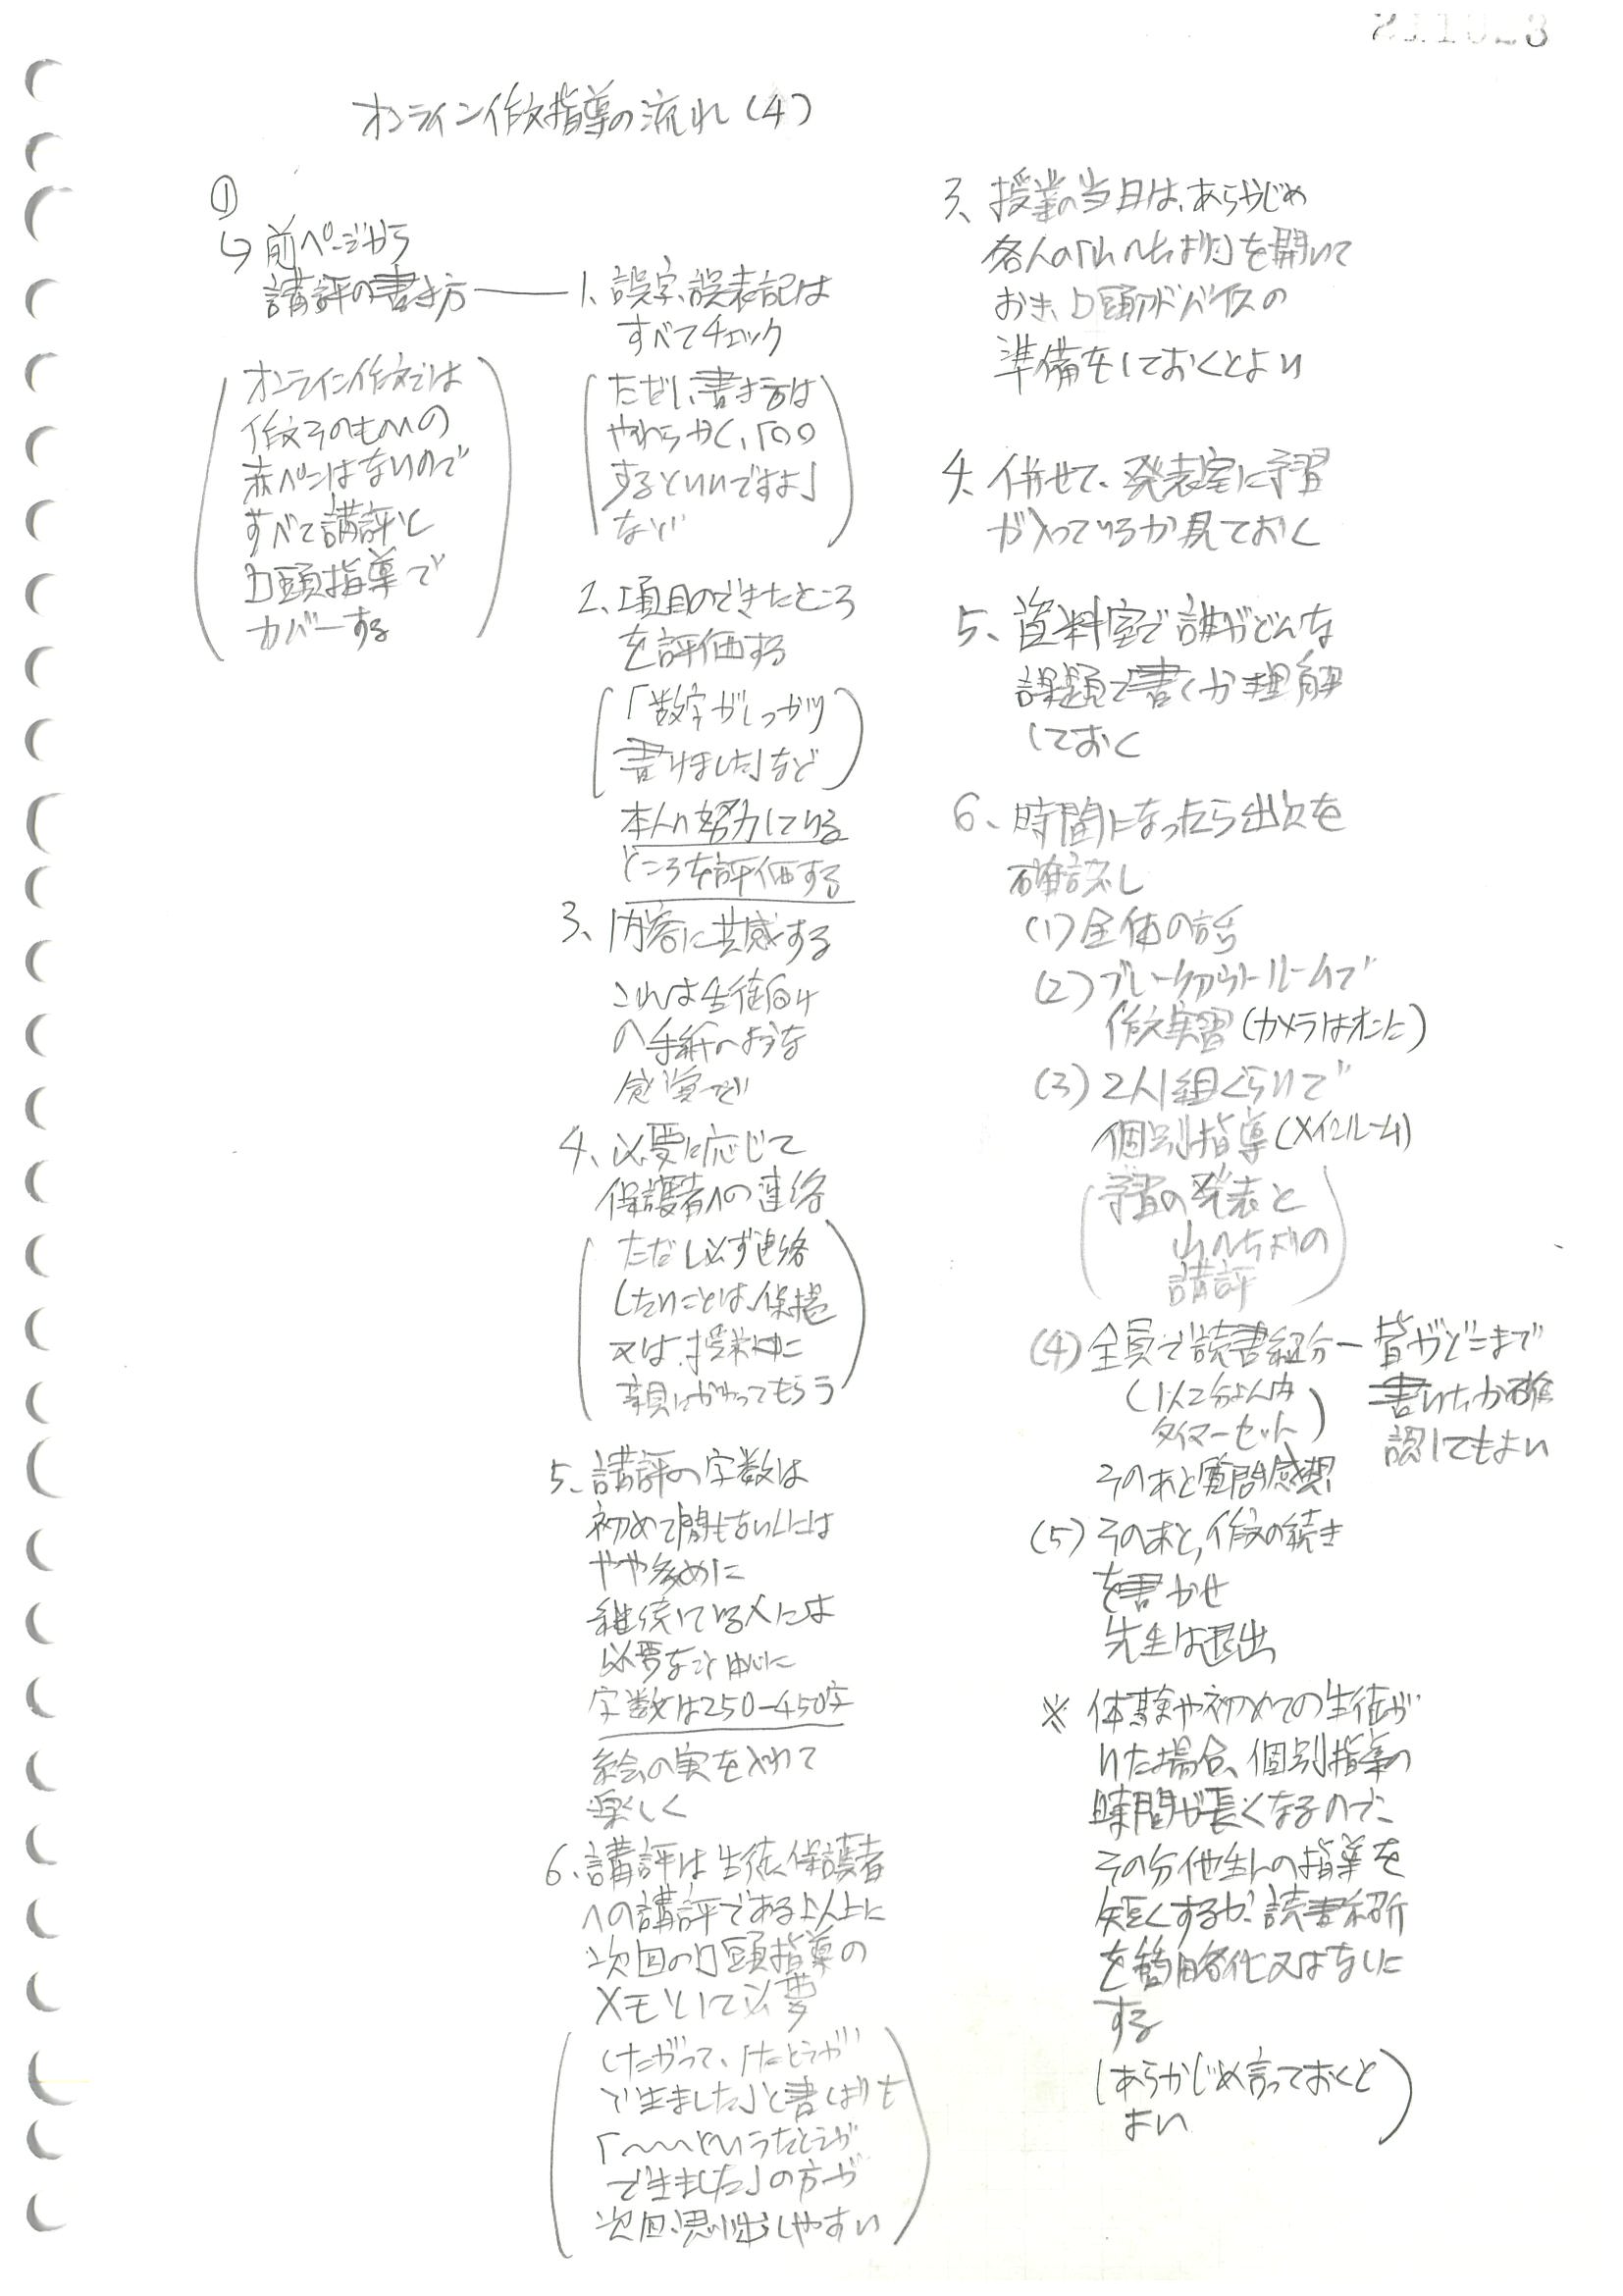 オンライン作文指導の流れ(4)
①
↳前ページから
講評の書き方
(オンライン作文では
作文そのものへの
赤ペンはないので
すべて講評と
口頭指導で
カバーする)
1、誤字、誤表記は
すべてチェック
(ただし、書き方は
やわらかく、「○○
するといいですよ」
など)
2、項目のできたところ
を評価する
(「数字がしっかり
書けました」など)
本人の努力している
ところを評価する
3、内容に共感する
これは生徒向け
の手紙のような
感覚で
4、必要に応じて
保護者への連絡
(ただし必ず連絡
したいことは、保護
又は、授業中に
親にかわってもらう)
5、講評の字数は
初めて間もない人には
やや多めに
継続している人には
必要なこと中心に
字数は250-450字
絵の実を入れて
楽しく
6、講評は生徒、保護者
への講評である以上に
次回の口頭指導の
メモとして必要
(したがって、「たとえが
できました」と書くよりも
「〜〜〜というたとえが
できました」の方が
次回、思い出しやすい)
3、授業の当日は、あらかじめ
各人の「山のたより」を開いて
おき、口頭アドバイスの
準備をしておくとよい
4、併せて、発表室に予習
が入っているか見ておく
5、資料室で誰がどんな
課題で書くか理解
しておく
6、時間になったら出欠を
確認し
(1)全体の話
(2)ブレークアウトルームで
作文実習(カメラはオンに)
(3)2人1組ぐらいで
個別指導(メインルーム)
(予習の発表と
山のたよりの
講評)
(4)全員で読書紹介ー皆がどこまで
書いたか確
認してもよい
(1人2分以内
タイマーセット)
そのあと質問感想
(5)そのあと、作文の続き
を書かせ
先生は退出
※体験や初めての生徒が
いた場合、個別指導の
時間が長くなるので、
その分他生徒の指導を
短くするか、読書紹介
を簡略化又はないに
する
(あらかじめ言っておくと
よい)